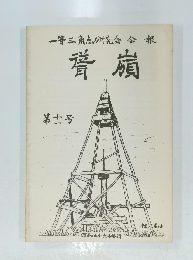 一等三角点研究会会報
聳嶺
第十号